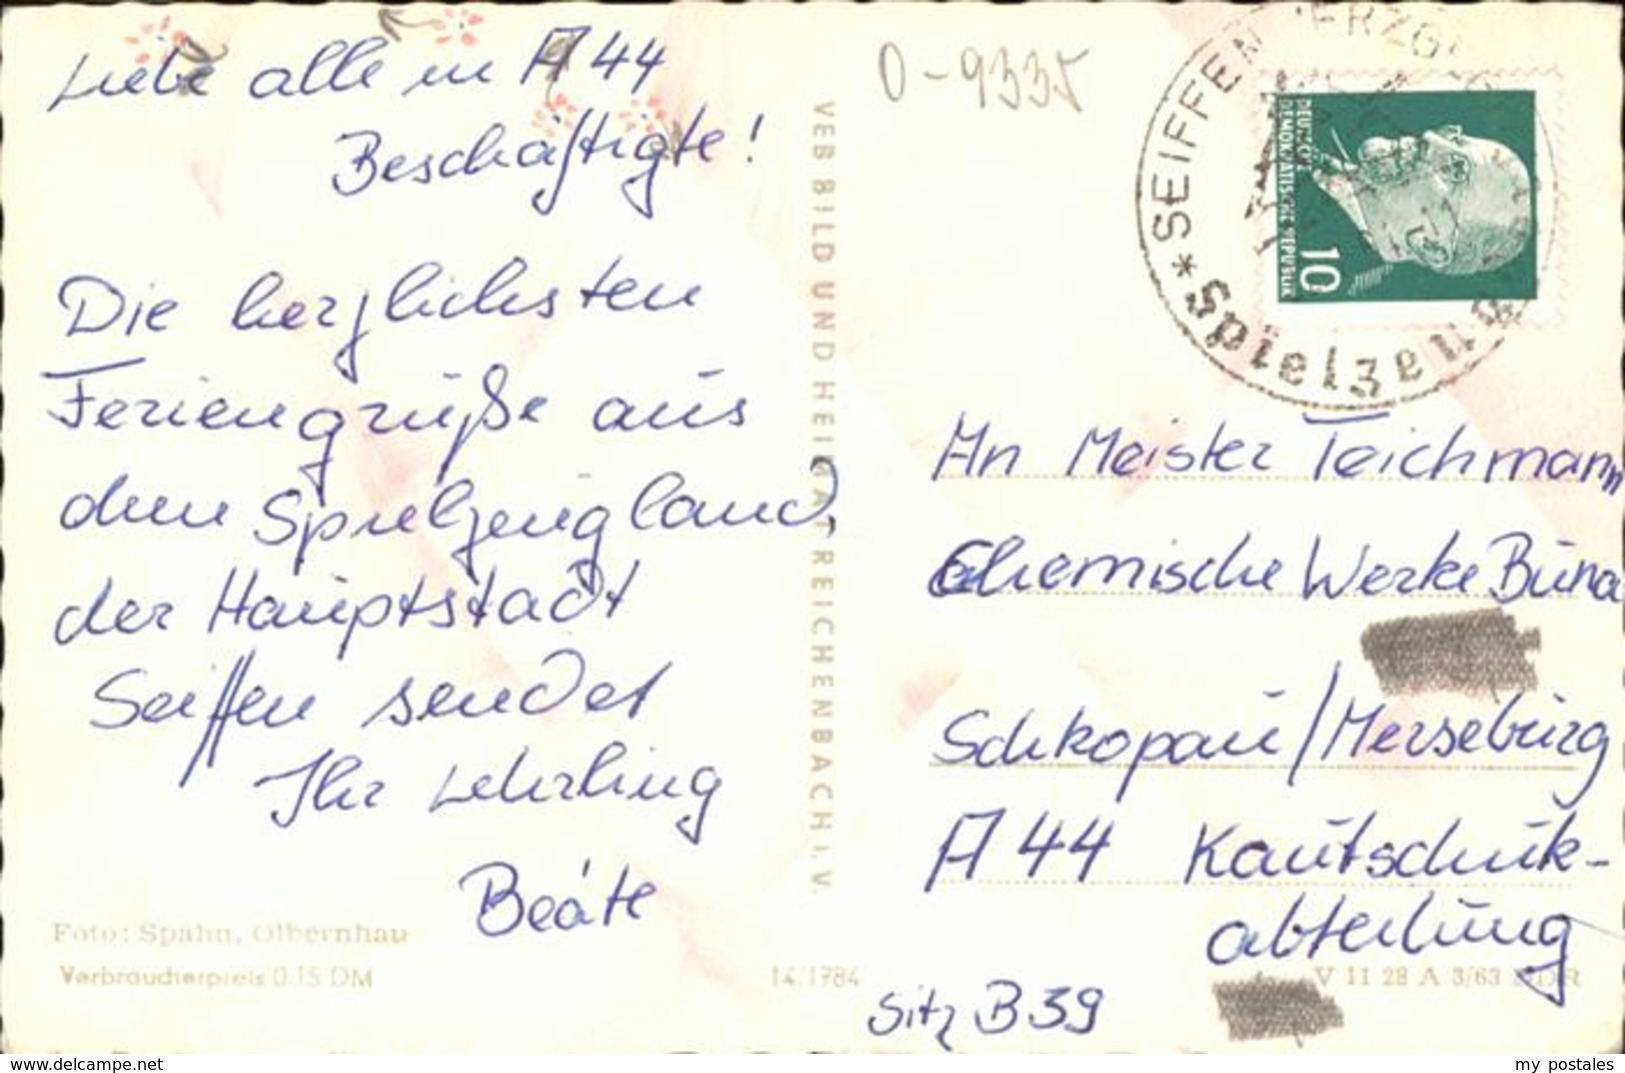 Liebe alle in A 44
Beschäftigte!
Die herzlichsten
Feriengrüße aus
dem Spielzeugland,
der Hauptstadt
Seiffen sendet
Ihr Lehrling
Beate
Foto: Spahn, Olbernhau
Verbraucherpreis 0.15 DM
VEB BILD UND HEIMAT REICHENBACH I. V.
14/1784
0-9335
* SEIFFEN ERZGEB
Spielzeug
DEUTSCHE
DEMOKRATISCHE REPUBLIK
10
An Meister Teichmann
Chemische Werke Buna
Schkopau/Merseburg
A 44 Kautschuk-
abteilung
Sitz B 39
V 11 28 A 3/63 DDR
www.delcampe.net
my postales